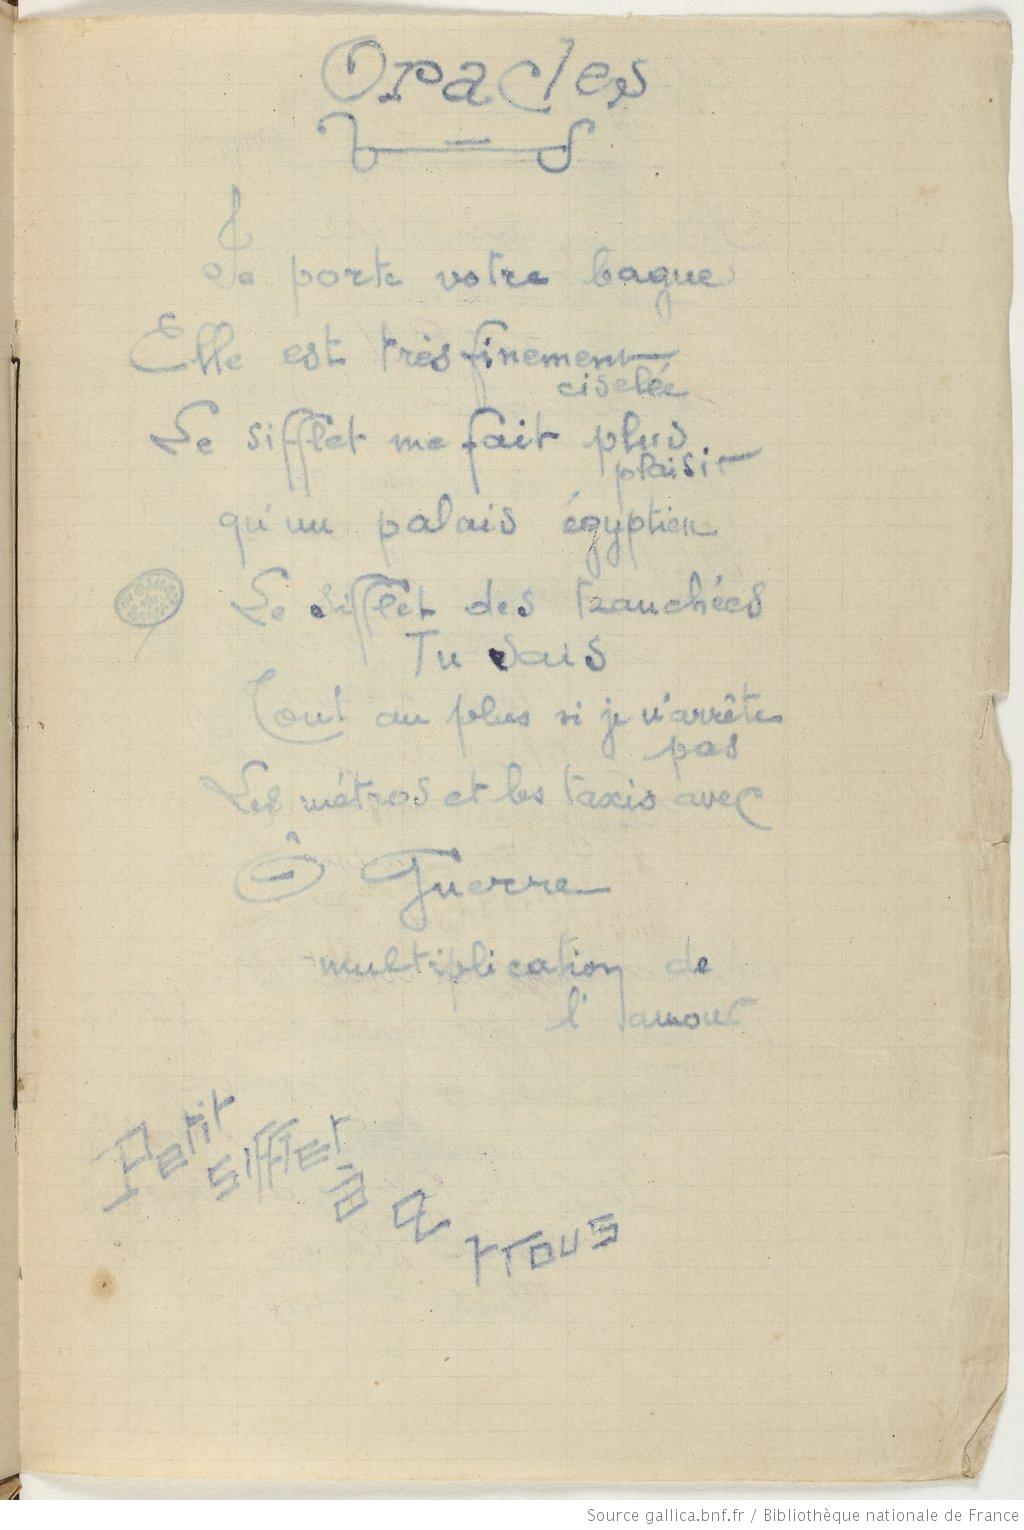 Oracles
Je porte votre bague
Elle est très finement
ciselée
Le sifflet me fait plus
plaisir
qu'un palais égyptien
Le sifflet des tranchées
Tu sais
Tout au plus si je n'arrête
pas
Les métros et les taxis avec
Ô Guerre
multiplication de
l'amour
Petit
sifflet
à 2
trous
Source gallica.bnf.fr / Bibliothèque nationale de France